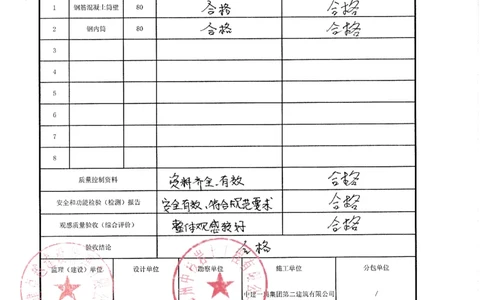 1 钢筋混凝土筒壁 80 合格 合格
2 钢内筒 80 合格 合格
3
4
5
6
7
8
质量控制资料 资料齐全、有效 合格
安全和功能检验(检测)报告 安全有效、符合规范要求 合格
观感质量验收(综合评价) 整体观感较好 合格
验收结论 合格
监理(建设)单位 设计单位 勘察单位 施工单位 分包单位
中建一局集团第二建筑有限公司 /